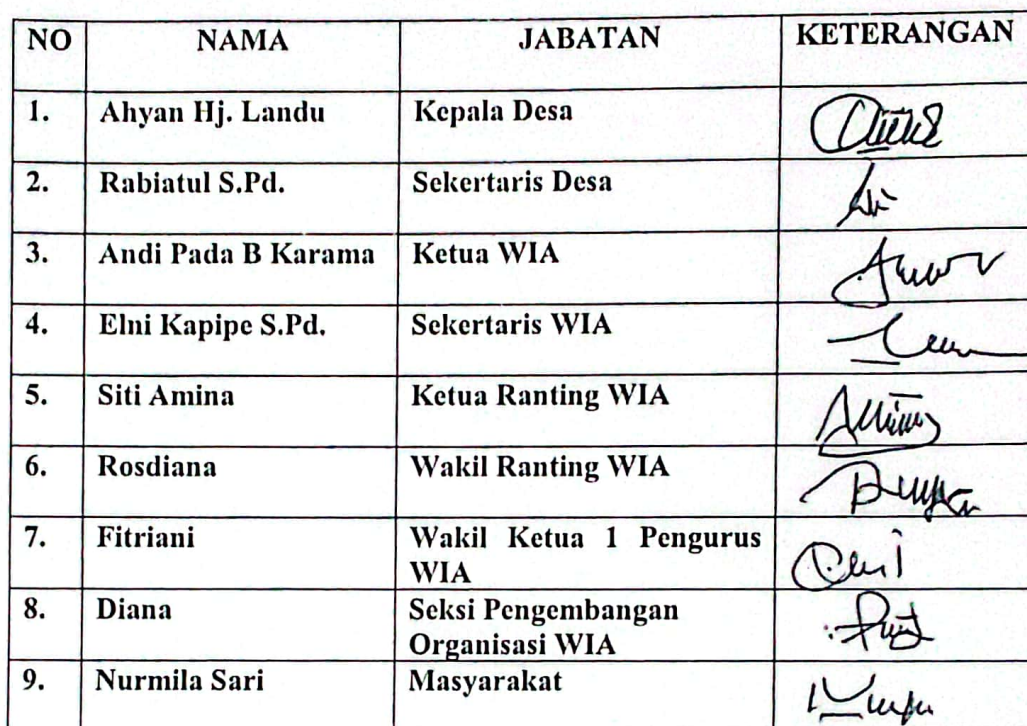 NO NAMA JABATAN KETERANGAN
1. Ahyan Hj. Landu Kepala Desa
2. Rabiatul S.Pd. Sekertaris Desa
3. Andi Pada B Karama Ketua WIA
4. Elni Kapipe S.Pd. Sekertaris WIA
5. Siti Amina Ketua Ranting WIA
6. Rosdiana Wakil Ranting WIA
7. Fitriani Wakil Ketua 1 Pengurus
WIA
8. Diana Seksi Pengembangan
Organisasi WIA
9. Nurmila Sari Masyarakat